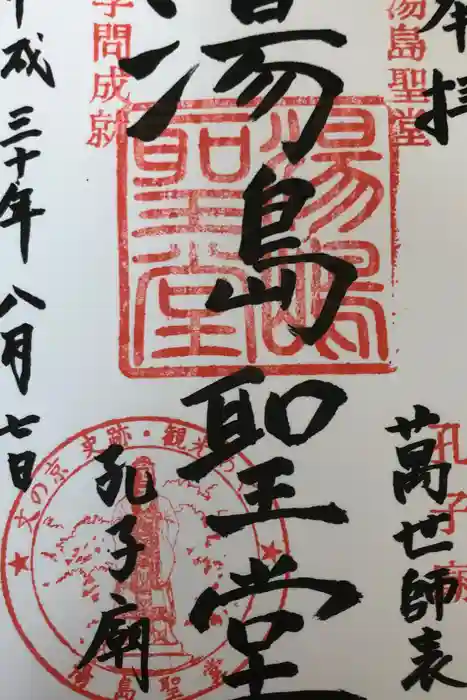 奉拝
湯島聖堂
孔子廟
萬世師表
湯島聖堂
湯島聖堂
学問成就
孔子廟
平成三十年八月七日
文の京 史跡・観光
湯島聖堂